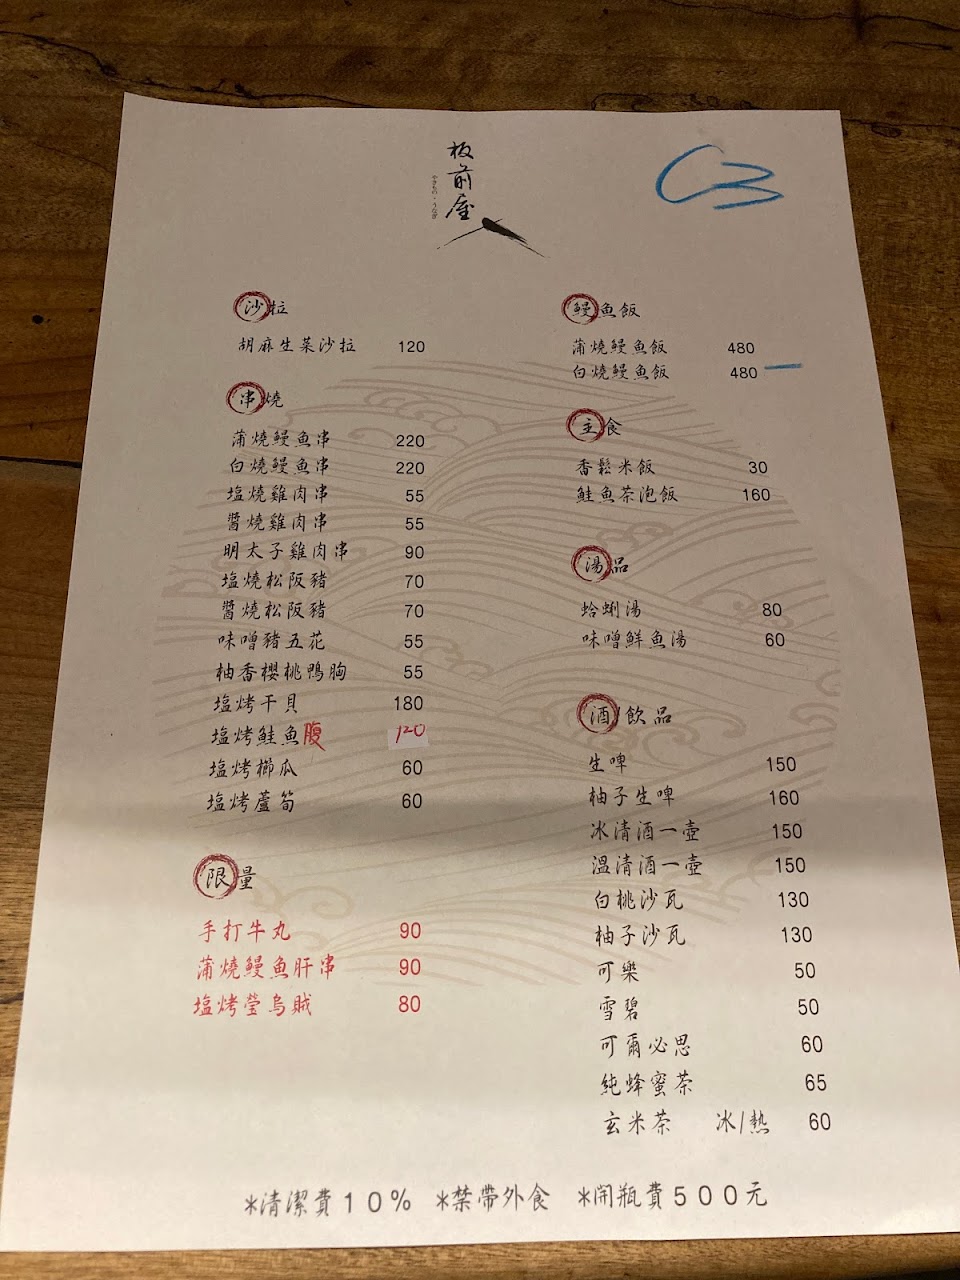 板前屋
やきもの・うなぎ
C3
沙拉
胡麻生菜沙拉 120
串燒
蒲燒鰻魚串 220
白燒鰻魚串 220
塩燒雞肉串 55
醬燒雞肉串 55
明太子雞肉串 90
塩燒松阪豬 70
醬燒松阪豬 70
味噌豬五花 55
柚香櫻桃鴨胸 55
塩烤干貝 180
塩烤鮭魚腹 120
塩烤櫛瓜 60
塩烤蘆筍 60
限量
手打牛丸 90
蒲燒鰻魚肝串 90
塩烤瑩烏賊 80
鰻魚飯
蒲燒鰻魚飯 480
白燒鰻魚飯 480
主食
香鬆米飯 30
鮭魚茶泡飯 160
湯品
蛤蜊湯 80
味噌鮮魚湯 60
酒/飲品
生啤 150
柚子生啤 160
冰清酒一壺 150
溫清酒一壺 150
白桃沙瓦 130
柚子沙瓦 130
可樂 50
雪碧 50
可爾必思 60
純蜂蜜茶 65
玄米茶 冰/熱 60
*清潔費10% *禁帶外食 *開瓶費500元